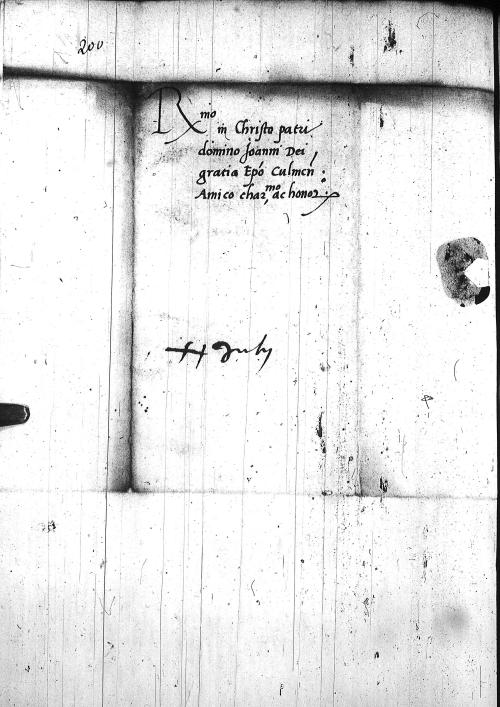 200
Rmo
in Christo patri
domino Joanni Dei
gratia Epo Culmen:
Amico char.mo ac honor:
July